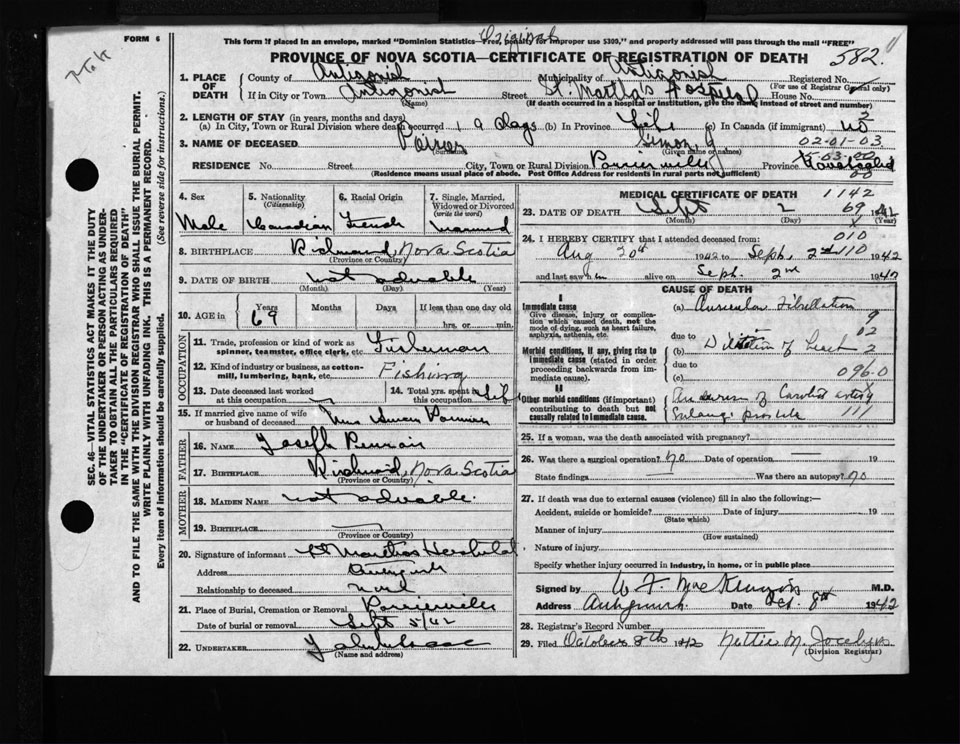 FORM 6
Original
This form if placed in an envelope, marked "Dominion Statistics—Free, penalty for improper use $300," and properly addressed will pass through the mail "FREE"
PROVINCE OF NOVA SCOTIA—CERTIFICATE OF REGISTRATION OF DEATH
582
1. PLACE OF DEATH
County of Antigonish Municipality of Antigonish Registered No.
(For use of Registrar General only)
If in City or Town Antigonish Street St. Martha's Hospital House No.
(Name) (If death occurred in a hospital or institution, give the name instead of street and number)
2. LENGTH OF STAY (in years, months and days)
(a) In City, Town or Rural Division where death occurred 19 days (b) In Province Life (c) In Canada (if immigrant) no
3. NAME OF DECEASED Poirier Simon J 02-01-03
(Surname) (Given name or names)
RESIDENCE No. Street City, Town or Rural Division Poirierville Province Nova Scotia
(Residence means usual place of abode. Post Office Address for residents in rural parts not sufficient)
4. Sex Male
5. Nationality (Citizenship) Canadian
6. Racial Origin French
7. Single, Married, Widowed or Divorced (write the word) married
8. BIRTHPLACE Richmond, Nova Scotia
(Province or Country)
9. DATE OF BIRTH not
(Month) (Day) (Year)
10. AGE in Years Months Days If less than one day old
69 hrs. or min.
OCCUPATION
11. Trade, profession or kind of work as spinner, teamster, office clerk, etc. Fisherman
12. Kind of industry or business, as cotton-mill, lumbering, bank, etc. Fishing
13. Date deceased last worked at this occupation
14. Total yrs. spent in this occupation Life
15. If married give name of wife or husband of deceased Mrs Susan
FATHER
16. NAME Joseph
17. BIRTHPLACE Richmond, Nova Scotia
(Province or Country)
MOTHER
18. MAIDEN NAME not
19. BIRTHPLACE
(Province or Country)
20. Signature of informant St Marthas Hospital
Address Antigonish
Relationship to deceased
21. Place of Burial, Cremation or Removal Poirierville
Date of burial or removal Sept 5/42
22. UNDERTAKER
(Name and address)
MEDICAL CERTIFICATE OF DEATH 1142
23. DATE OF DEATH Sept 2 1942
69
(Month) (Day) (Year)
010
24. I HEREBY CERTIFY that I attended deceased from:
Aug 30th 1942 to Sept. 2nd
110
and last saw h im alive on Sept. 2nd 1942
CAUSE OF DEATH
I
Immediate cause
Give disease, injury or complication which caused death, not the mode of dying, such as heart failure, asphyxia, asthenia, etc.
(a) Auricular Fibrillation
9
due to 02
Morbid conditions, if any, giving rise to immediate cause (stated in order proceeding backwards from immediate cause).
(b) Dilation of heart 2
due to
(c) 096.0
II
Other morbid conditions (if important) contributing to death but not causally related to immediate cause.
Aneurism of Carotid artery
Enlarged prostate 111
25. If a woman, was the death associated with pregnancy?
26. Was there a surgical operation? no Date of operation 19
State findings Was there an autopsy? no
27. If death was due to external causes (violence) fill in also the following:—
Accident, suicide or homicide? Date of injury 19
(State which)
Manner of injury
(How sustained)
Nature of injury
Specify whether injury occurred in industry, in home, or in public place
Signed by M.D.
Address Antigonish Date Oct. 8th 1942
28. Registrar's Record Number
29. Filed October 8th 1942 Nettie M. Jocelyn
(Division Registrar)
SEC. 46—VITAL STATISTICS ACT MAKES IT THE DUTY
OF THE UNDERTAKER OR PERSON ACTING AS UNDERTAKER TO OBTAIN ALL THE PARTICULARS REQUIRED
IN THE "CERTIFICATE OF REGISTRATION OF DEATH"
AND TO FILE THE SAME WITH THE DIVISION REGISTRAR WHO SHALL ISSUE THE BURIAL PERMIT.
WRITE PLAINLY WITH UNFADING INK. THIS IS A PERMANENT RECORD.
Every item of information should be carefully supplied. (See reverse side for instructions.)